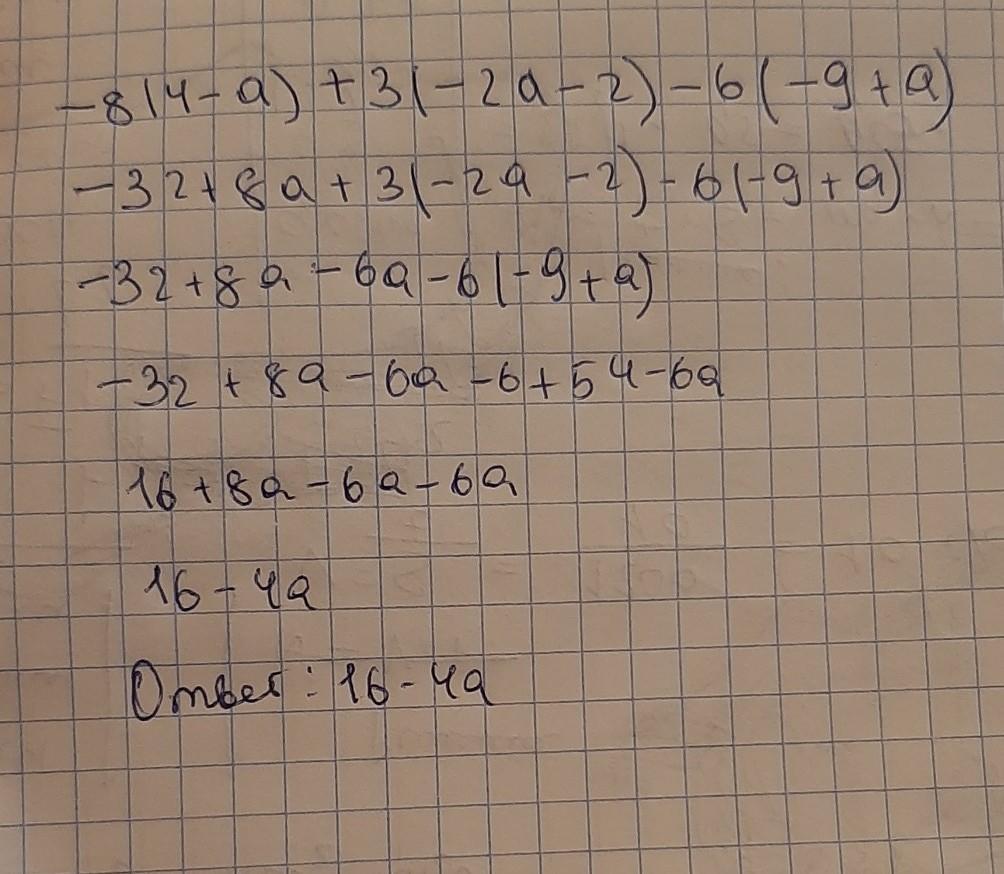 -8(4-a)+3(-2a-2)-6(-9+a)
-32+8a+3(-2a-2)-6(-9+a)
-32+8a-6a-6(-9+a)
-32+8a-6a-6+54-6a
16+8a-6a-6a
16-4a
Ответ: 16-4a